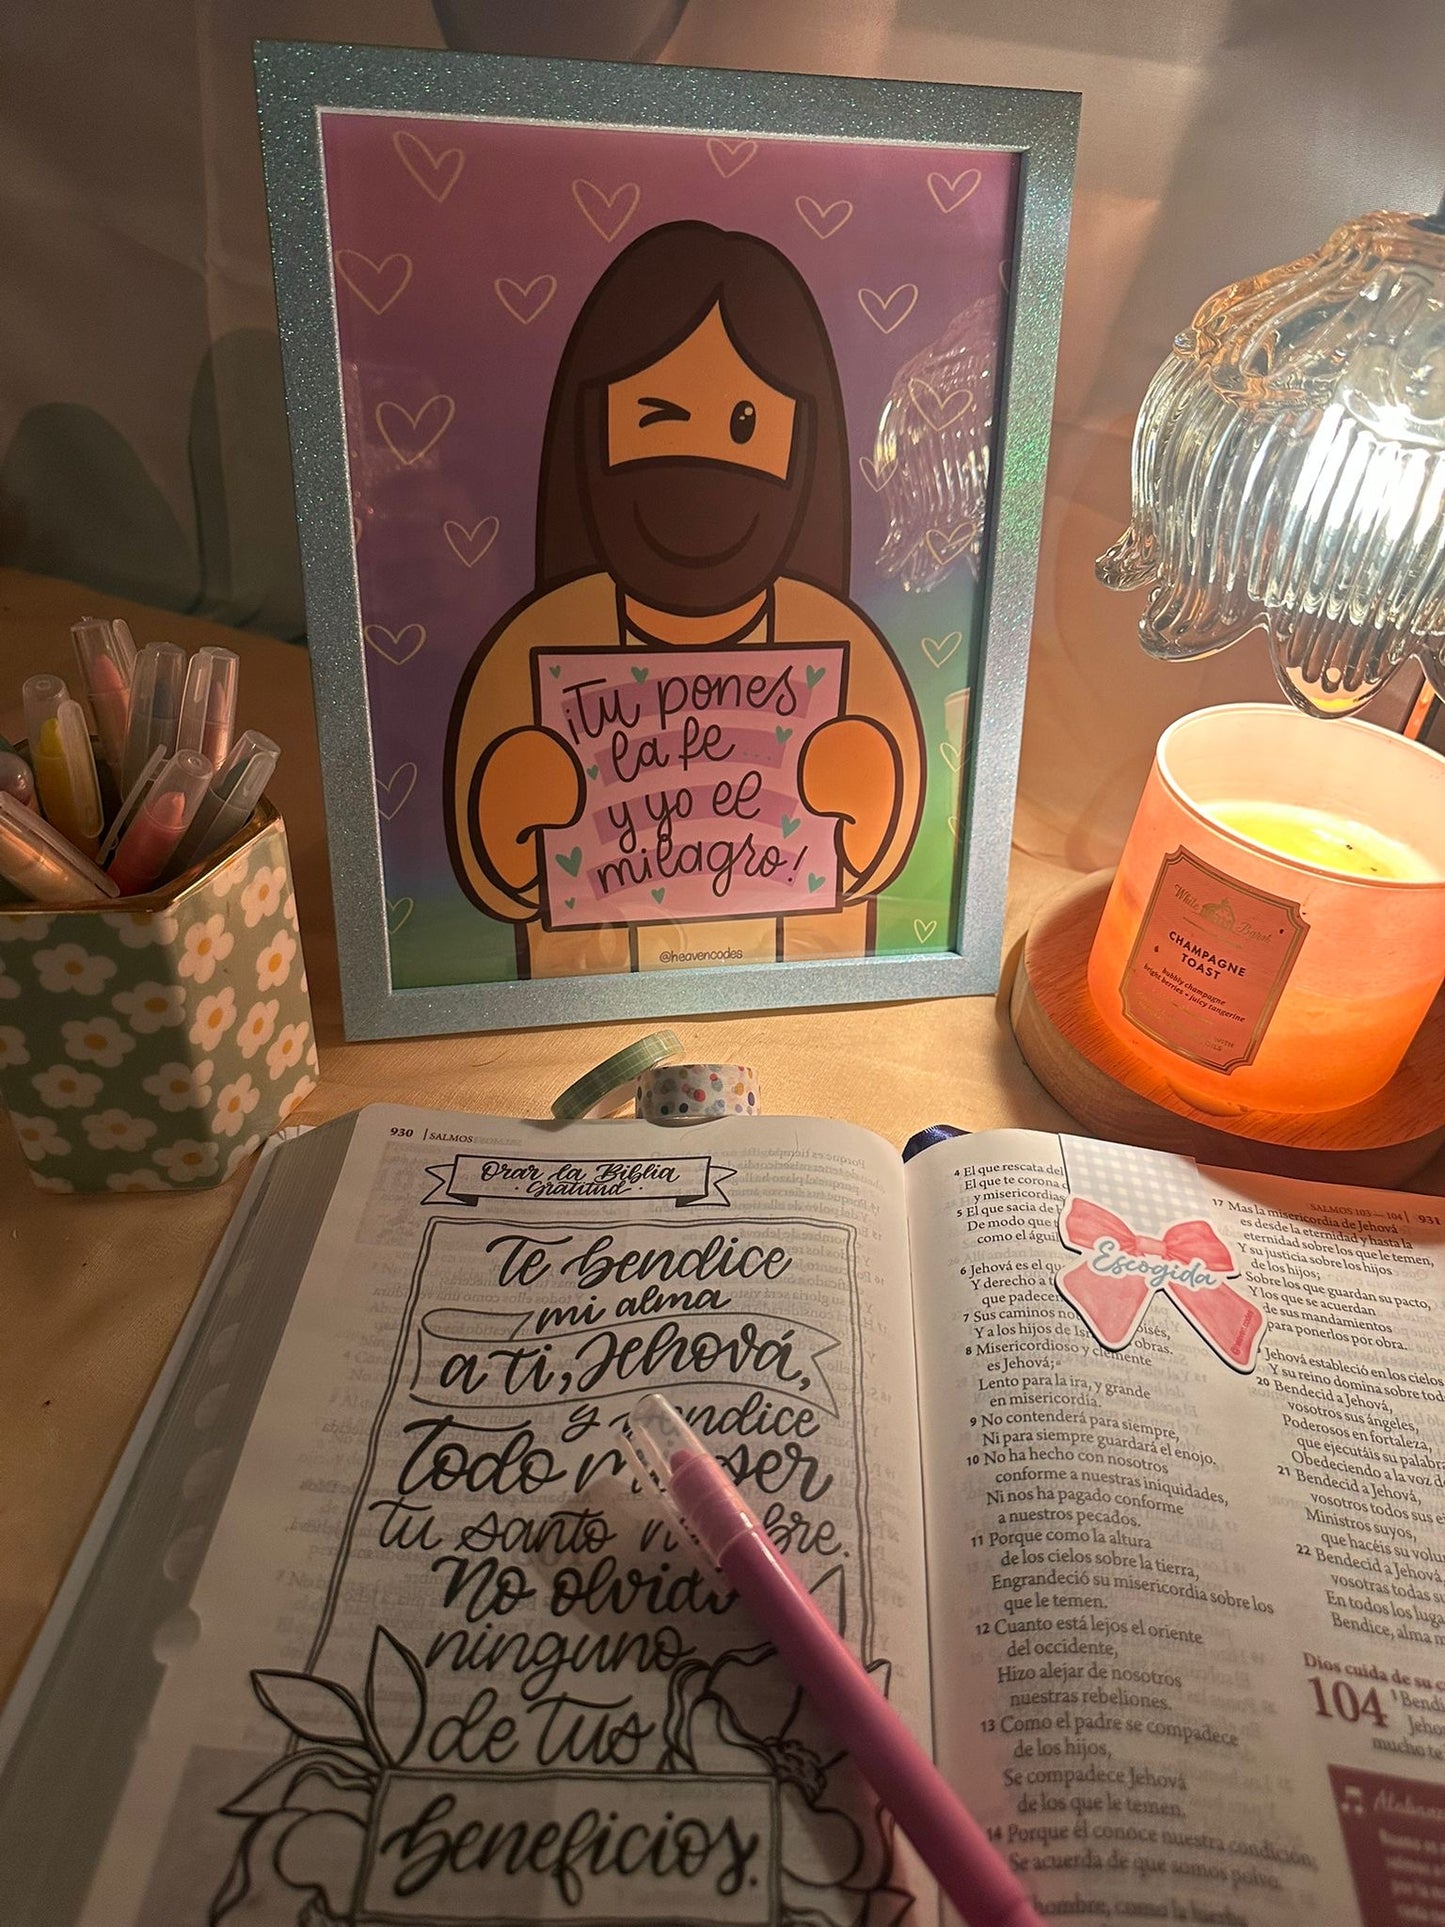 ¡Tu pones
la fe
y yo el
milagro!
@heavencodes
White Barn
CHAMPAGNE
TOAST
bubbly champagne
bright berries • juicy tangerine
930 | SALMOS
Orar la Biblia
·Gratitud·
Te bendice
mi alma
a ti, Jehová,
y
Todo ser
tu santo
No
ninguno
de tus
beneficios.
4 El que rescata del
El que te corona
y misericordias
5 El que sacia de
De modo que
como el
6 Jehová es el
Y derecho a
que padecen
7 Sus caminos
Y a los hijos de
obras.
8 Misericordioso y clemente
es Jehová;
Lento para la ira, y grande
en misericordia.
9 No contenderá para siempre,
Ni para siempre guardará el enojo.
10 No ha hecho con nosotros
conforme a nuestras iniquidades,
Ni nos ha pagado conforme
a nuestros pecados.
11 Porque como la altura
de los cielos sobre la tierra,
Engrandeció su misericordia sobre los
que le temen.
12 Cuanto está lejos el oriente
del occidente,
Hizo alejar de nosotros
nuestras rebeliones.
13 Como el padre se compadece
de los hijos,
Se compadece Jehová
de los que le temen.
14 Porque él conoce nuestra condición;
Se acuerda de que somos polvo.
hombre, como la hierba
Escogida
SALMOS 103—104 | 931
17 Mas la misericordia de Jehová
es desde la eternidad y hasta la
eternidad sobre los que le temen,
Y su justicia sobre los hijos
de los hijos;
Sobre los que guardan su pacto,
Y los que se acuerdan
de sus mandamientos
para ponerlos por obra.
Jehová estableció en los cielos
Y su reino domina sobre
20 Bendecid a Jehová,
vosotros sus ángeles,
Poderosos en fortaleza,
que ejecutáis su
Obedeciendo a la voz
21 Bendecid a Jehová,
vosotros todos sus
Ministros suyos,
que hacéis su
22 Bendecid a Jehová,
vosotras todas
En todos los
Bendice, alma
Dios cuida de su
104